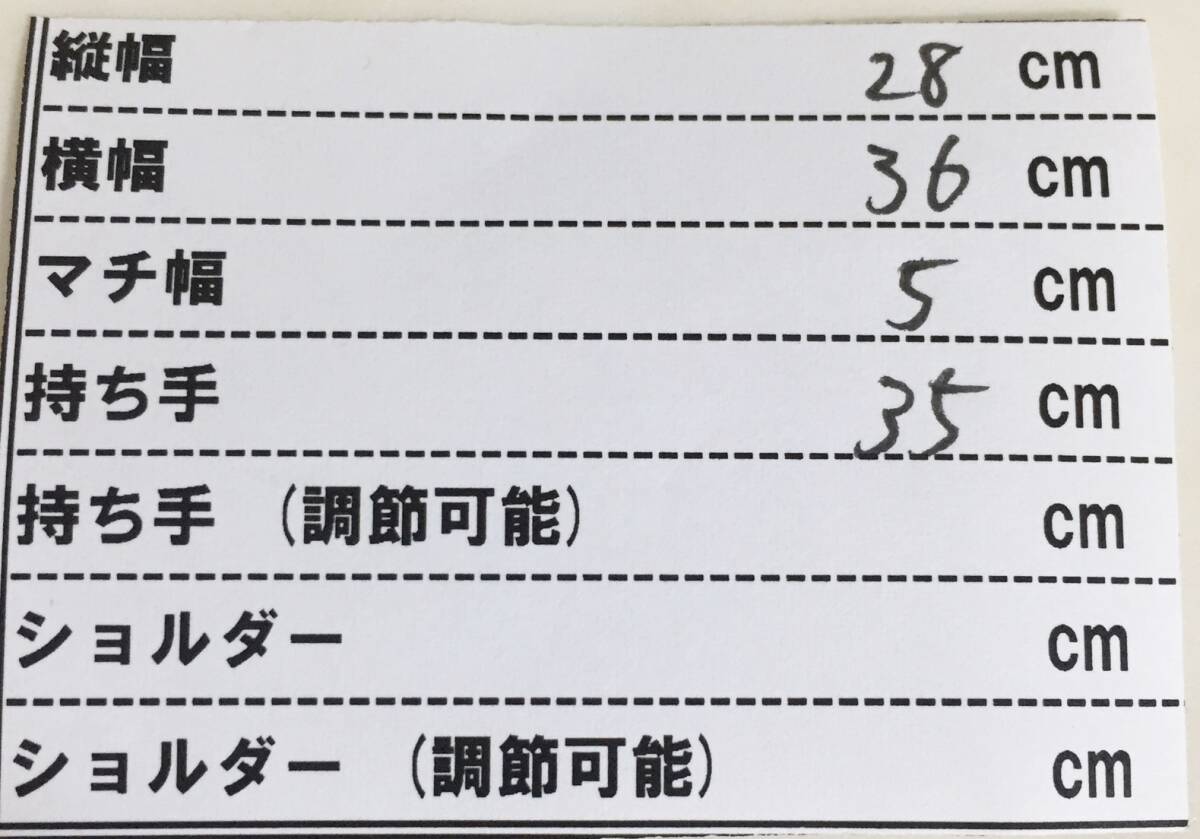 縦幅 28 cm
横幅 36 cm
マチ幅 5 cm
持ち手 35 cm
持ち手 (調節可能) cm
ショルダー cm
ショルダー (調節可能) cm